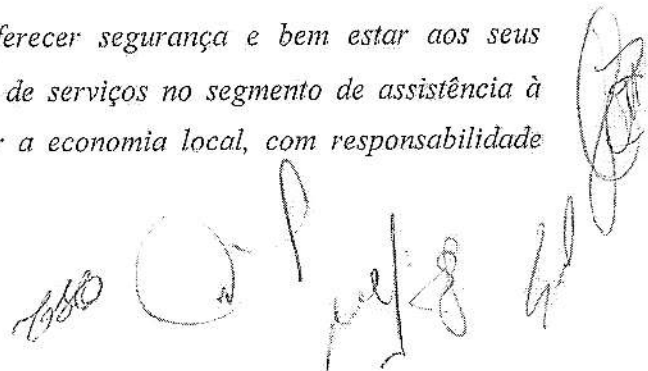 ferecer segurança e bem estar aos seus
de serviços no segmento de assistência à
r a economia local, com responsabilidade